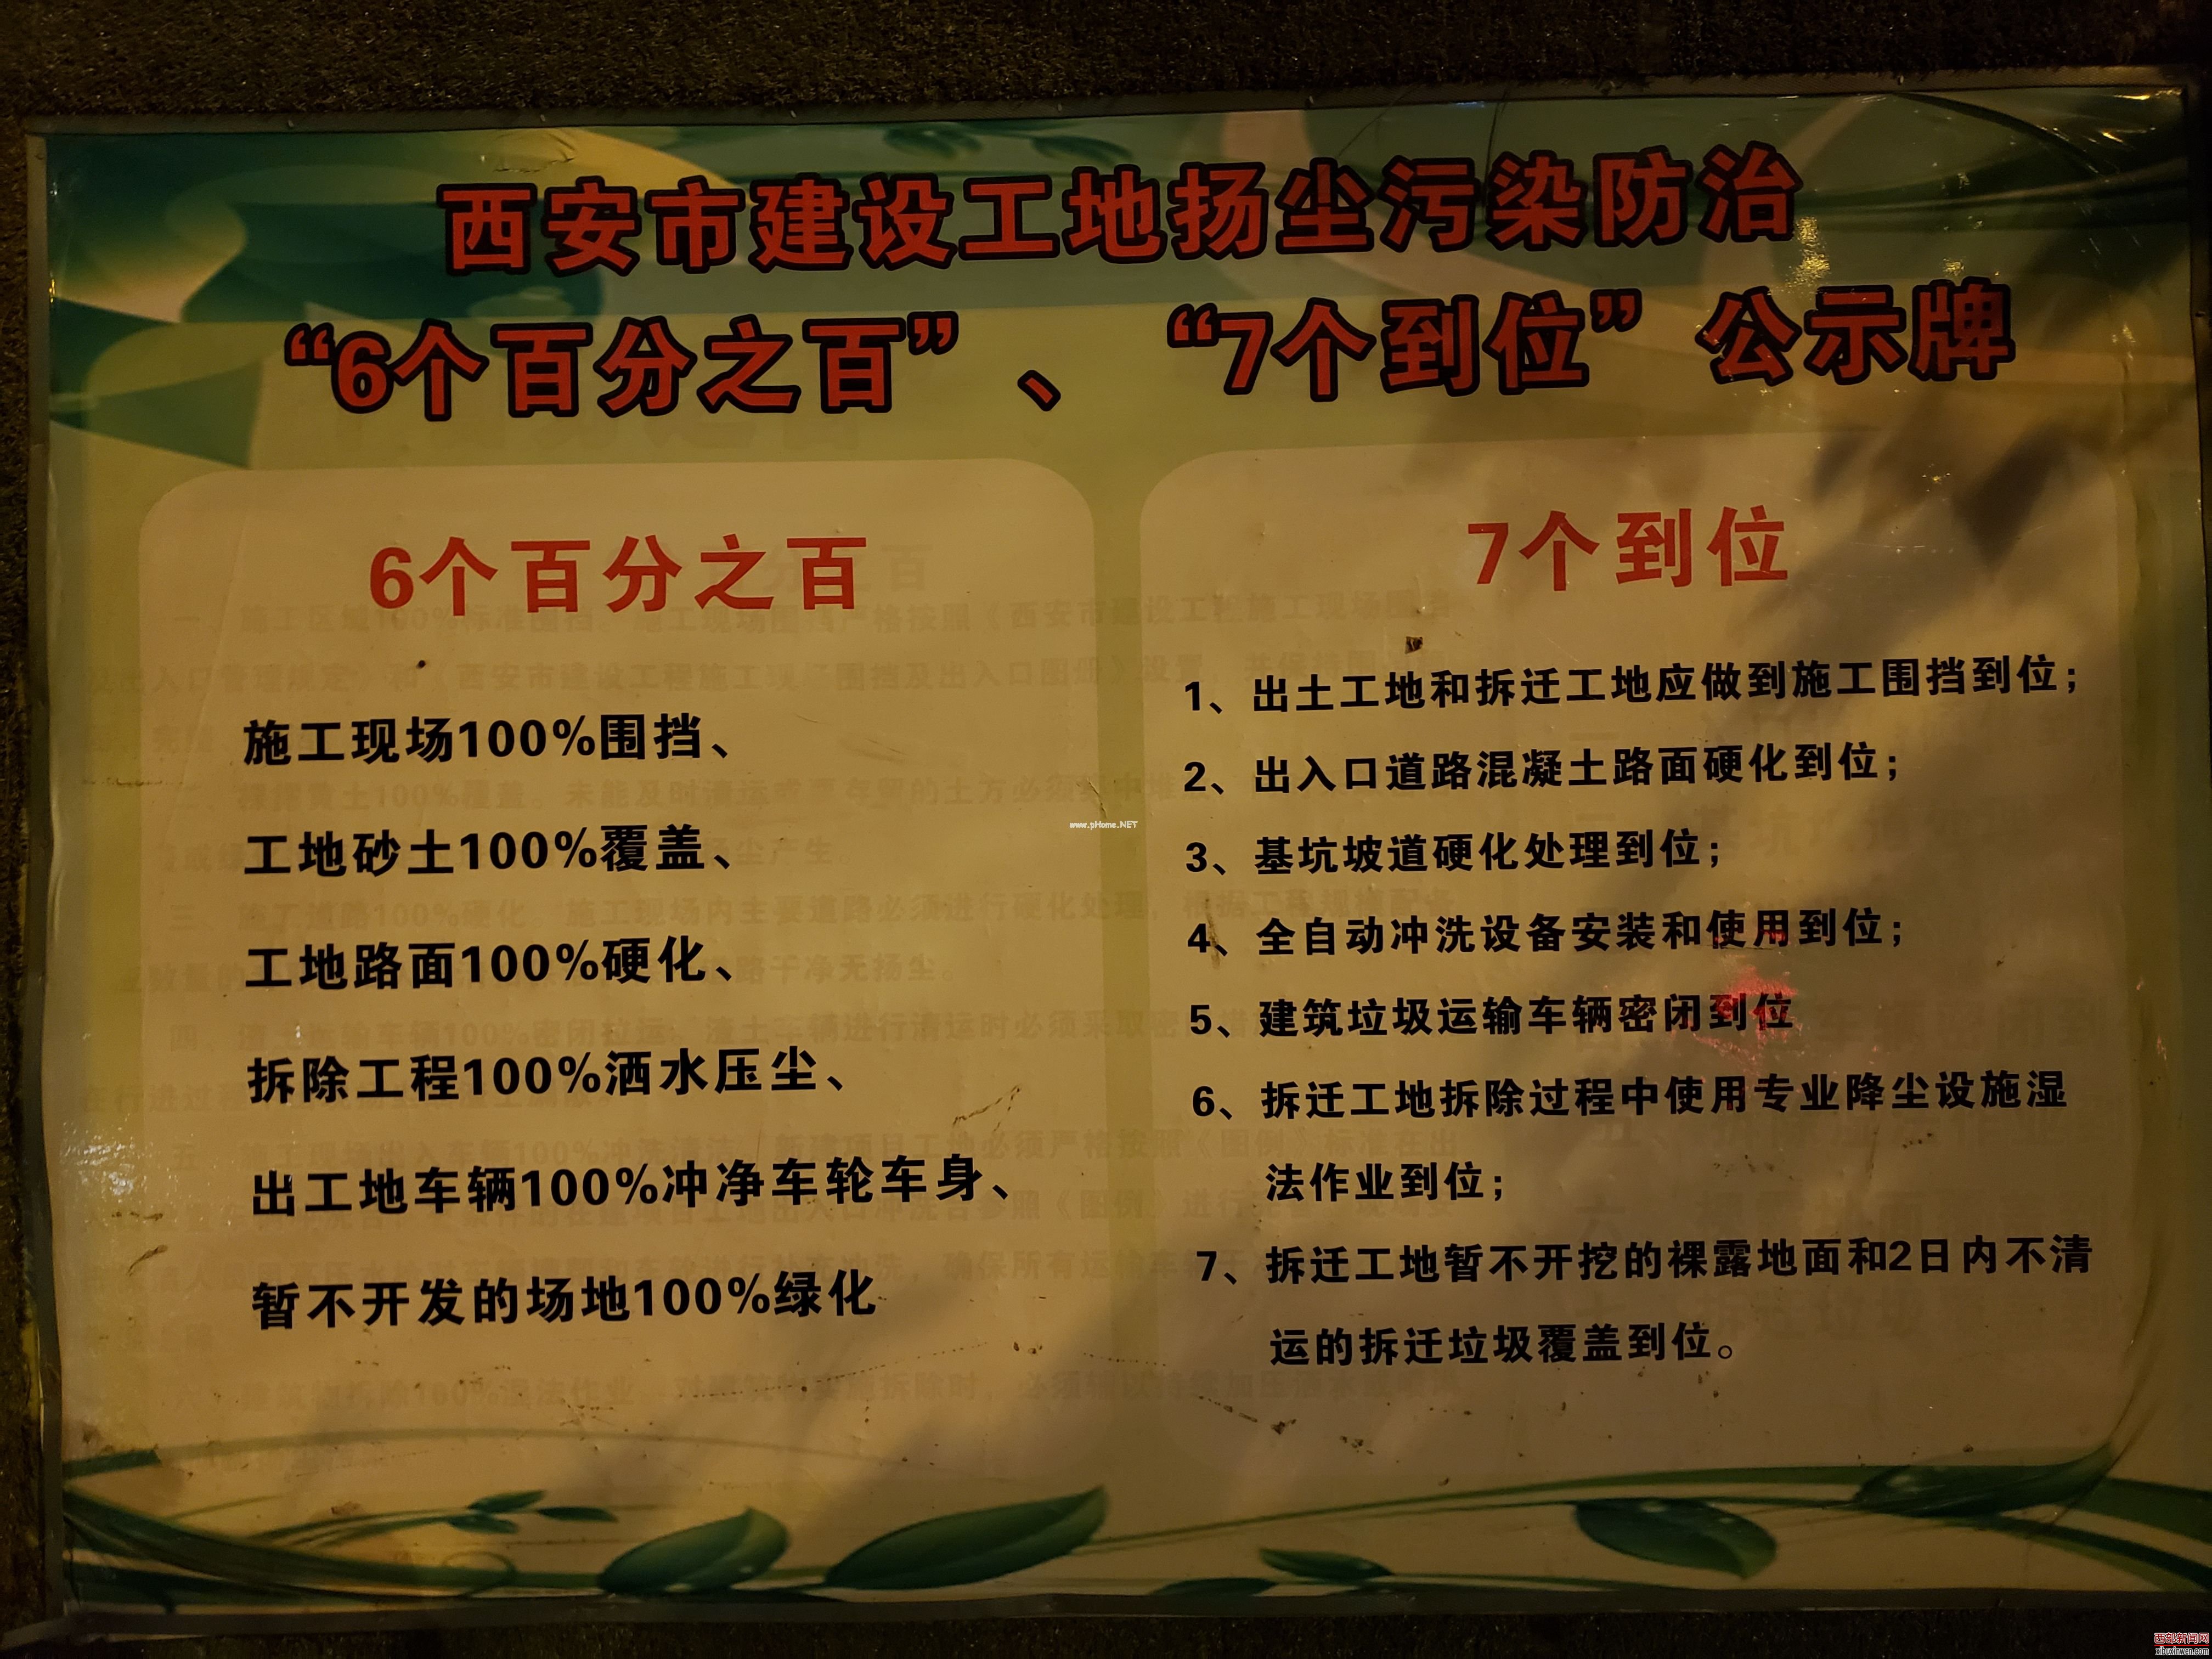 西安市建设工地扬尘污染防治
“6个百分之百”、“7个到位”公示牌
6个百分之百
施工现场100%围挡、
工地砂土100%覆盖、
工地路面100%硬化、
拆除工程100%洒水压尘、
出工地车辆100%冲净车轮车身、
暂不开发的场地100%绿化
7个到位
1、出土工地和拆迁工地应做到施工围挡到位；
2、出入口道路混凝土路面硬化到位；
3、基坑坡道硬化处理到位；
4、全自动冲洗设备安装和使用到位；
5、建筑垃圾运输车辆密闭到位
6、拆迁工地拆除过程中使用专业降尘设施湿
法作业到位；
7、拆迁工地暂不开挖的裸露地面和2日内不清
运的拆迁垃圾覆盖到位。
www.pHome.NET
西部新闻网
xibuxinwen.com